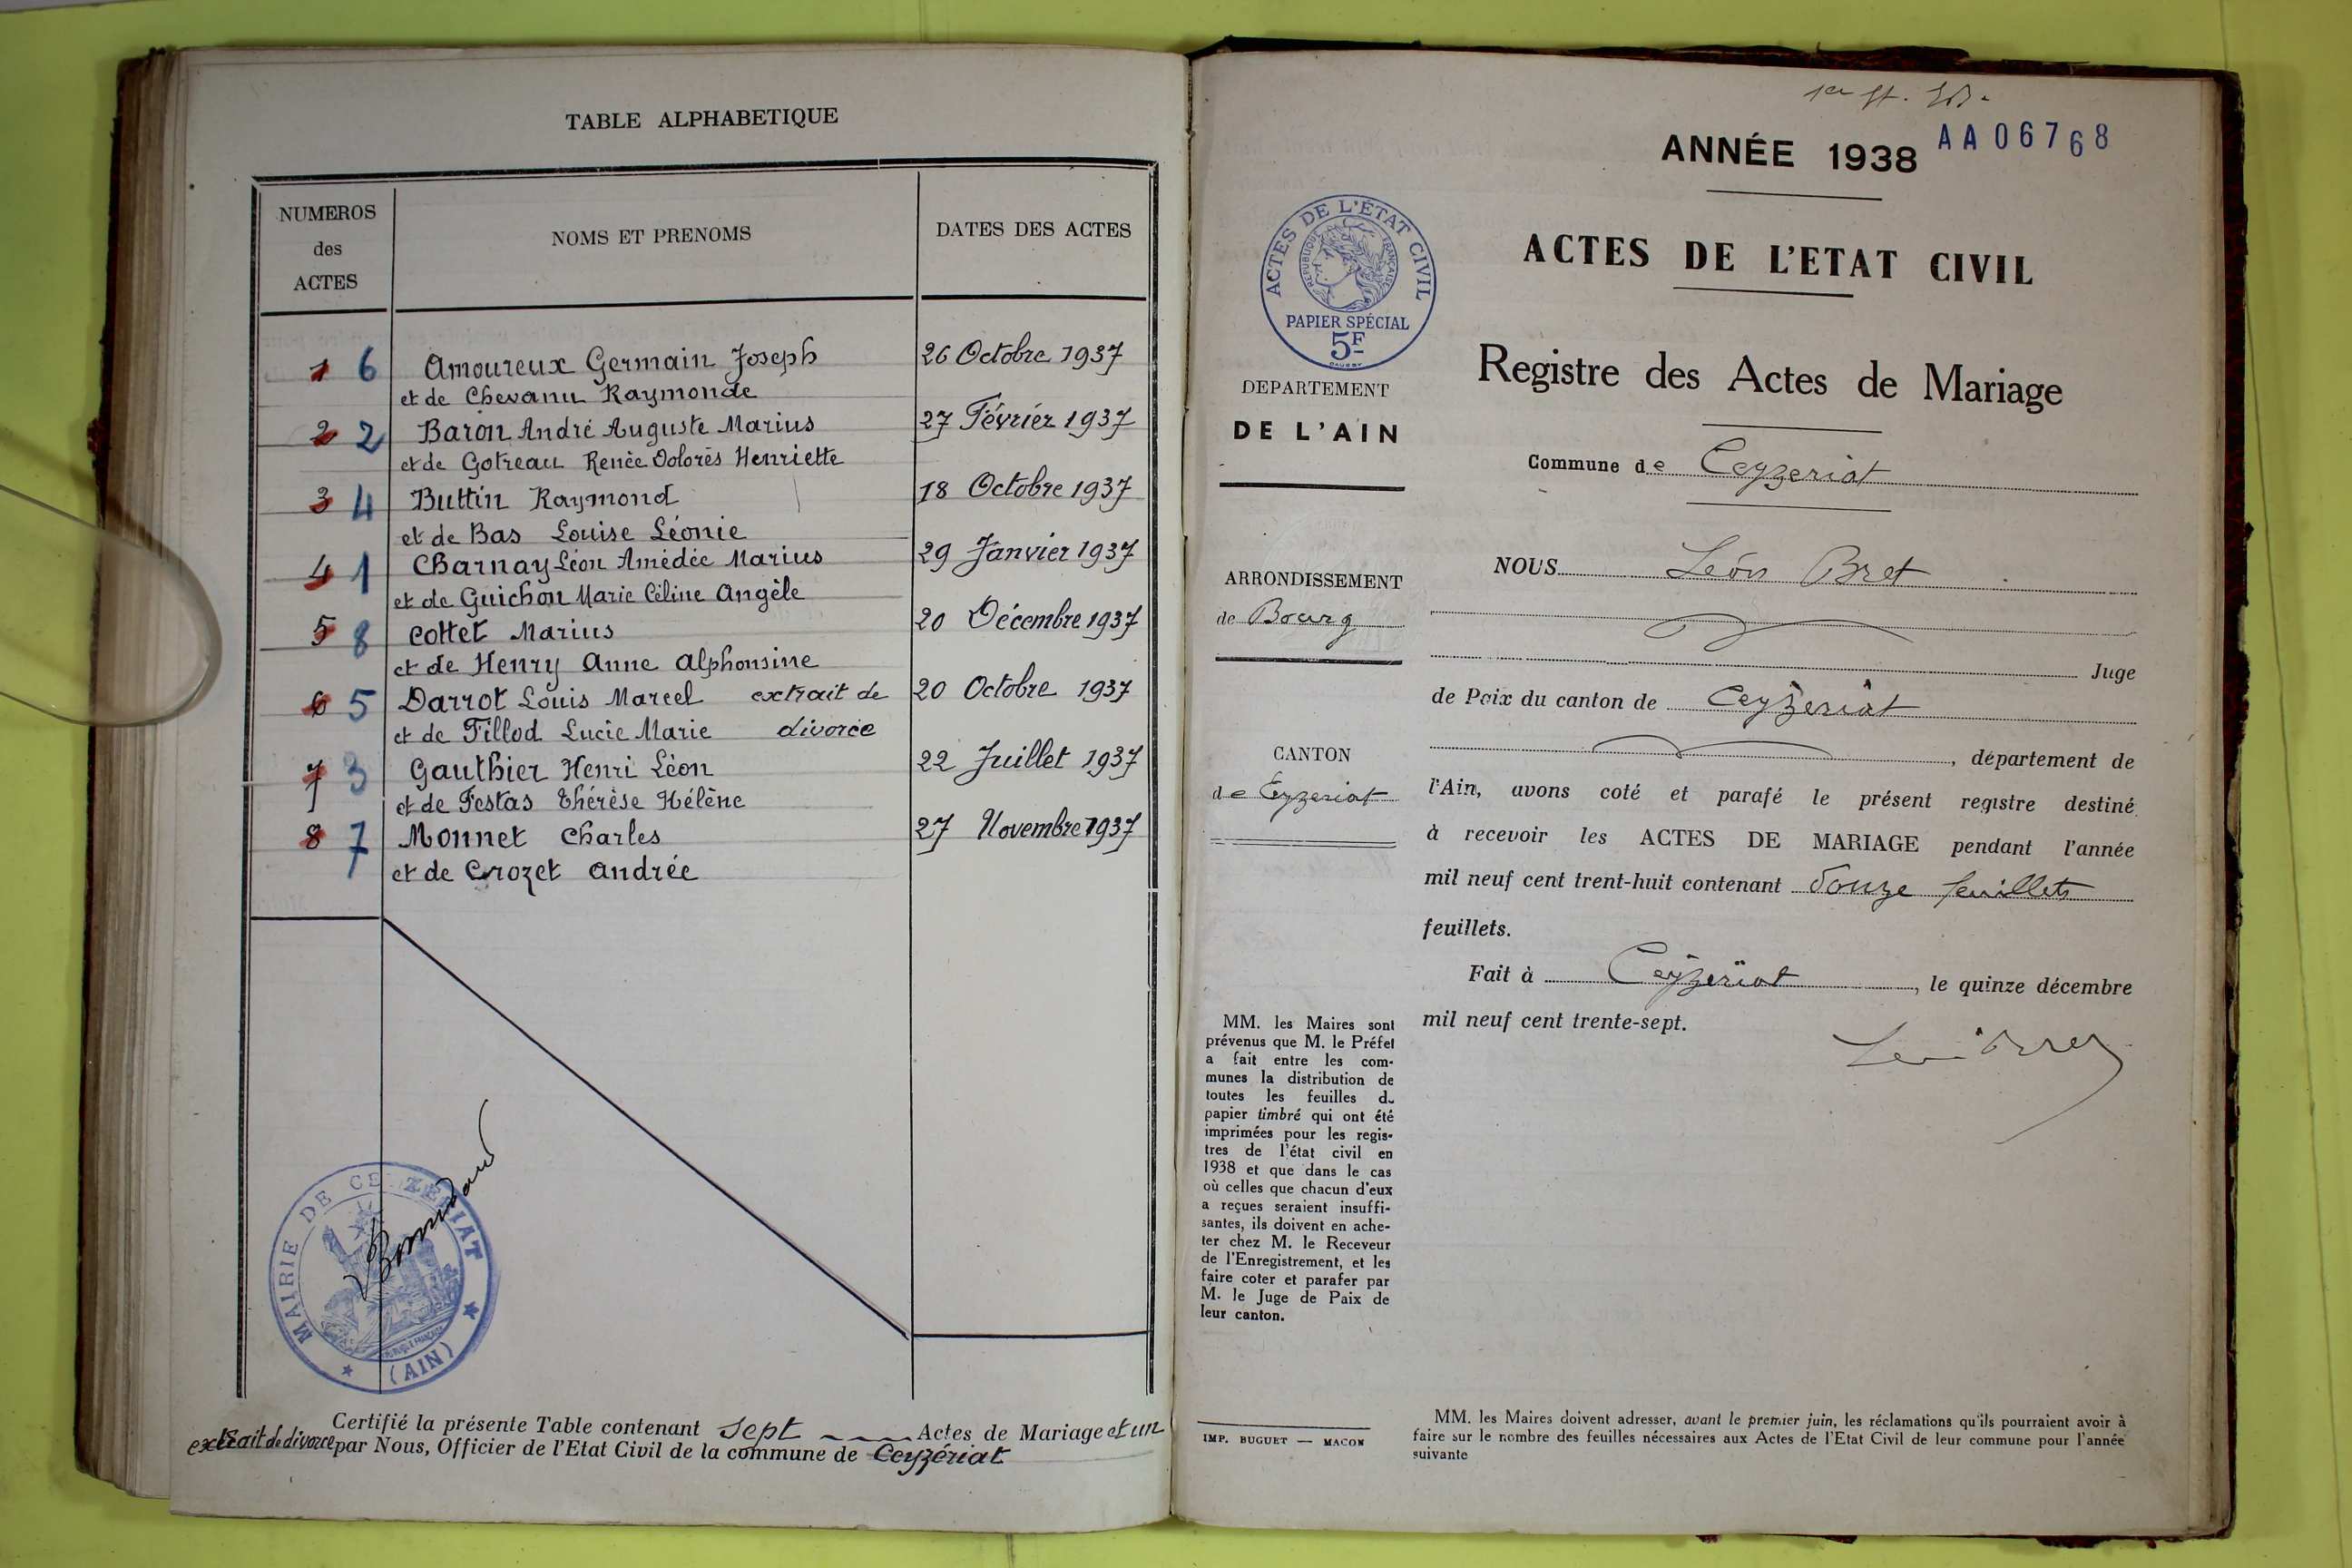 TABLE ALPHABETIQUE
NUMEROS
des
ACTES
NOMS ET PRENOMS
DATES DES ACTES
1 6 Amoureux Germain Joseph 26 Octobre 1937
et de Chevanu Raymonde
2 2 Baron André Auguste Marius 27 Février 1937
et de Gotreau Renée Dolorès Henriette
3 4 Buttin Raymond 18 Octobre 1937
et de Bas Louise Léonie
4 1 Charnay Léon Amédée Marius 29 Janvier 1937
et de Guichon Marie Céline Angèle
5 8 Cottet Marius 20 Décembre 1937
et de Henry Anne Alphonsine
6 5 Darrot Louis Marcel extrait de 20 Octobre 1937
et de Fillod Lucie Marie divorce
7 3 Gauthier Henri Léon 22 Juillet 1937
et de Festas Thérèse Hélène
8 7 Monnet Charles 27 Novembre 1937
et de Crozet Andrée
MAIRIE DE CEYZERIAT
(AIN)
Certifié la présente Table contenant sept Actes de Mariage et un
extrait de divorce par Nous, Officier de l'Etat Civil de la commune de Ceyzériat
ANNÉE 1938
AA06768
ACTES DE L'ÉTAT CIVIL
RÉPUBLIQUE FRANÇAISE
PAPIER SPÉCIAL
5F
ACTES DE L'ETAT CIVIL
Registre des Actes de Mariage
Commune de Ceyzeriat
DEPARTEMENT
DE L'AIN
ARRONDISSEMENT
de Bourg
CANTON
de Ceyzeriat
NOUS Léon Bret
Juge
de Paix du canton de Ceyzeriat
, département de
l'Ain, avons coté et parafé le présent registre destiné
à recevoir les ACTES DE MARIAGE pendant l'année
mil neuf cent trent-huit contenant douze feuillets
feuillets.
Fait à Ceyzeriat, le quinze décembre
mil neuf cent trente-sept.
MM. les Maires sont
prévenus que M. le Préfet
a fait entre les com-
munes la distribution de
toutes les feuilles de
papier timbré qui ont été
imprimées pour les regis-
tres de l'état civil en
1938 et que dans le cas
où celles que chacun d'eux
a reçues seraient insuffi-
santes, ils doivent en ache-
ter chez M. le Receveur
de l'Enregistrement, et les
faire coter et parafer par
M. le Juge de Paix de
leur canton.
IMP. BUGUET — MACON
MM. les Maires doivent adresser, avant le premier juin, les réclamations qu'ils pourraient avoir à
faire sur le nombre des feuilles nécessaires aux Actes de l'Etat Civil de leur commune pour l'année
suivante